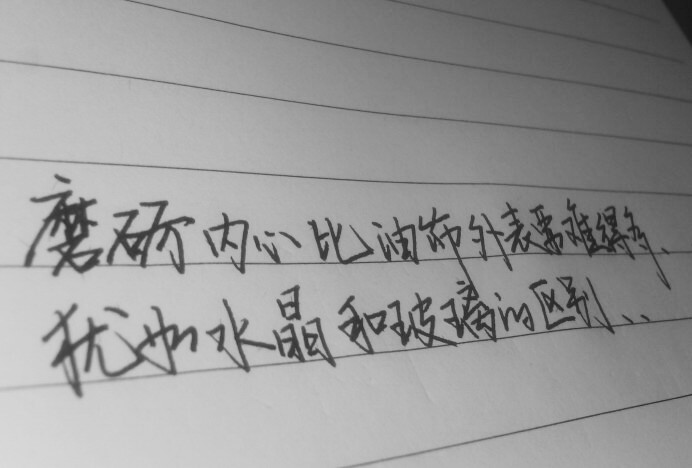 磨砺内心比油饰外表要难得多、
犹如水晶和玻璃的区别、、